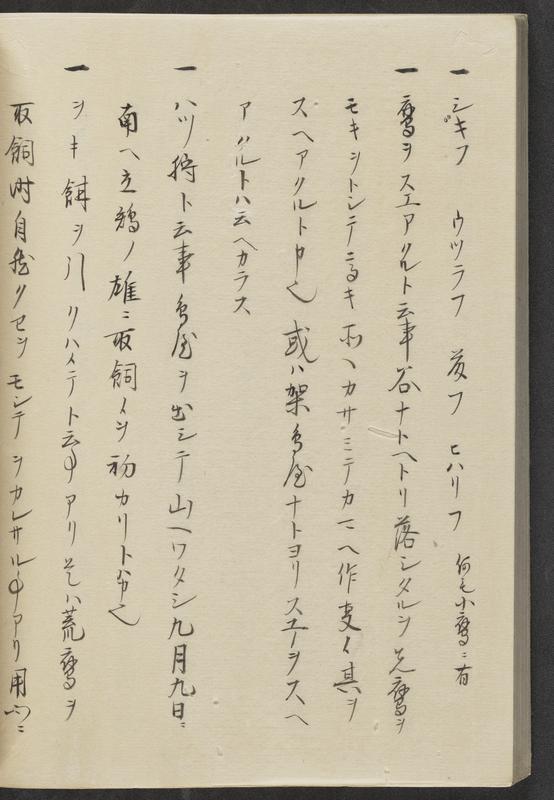 一 シギフ ウツラフ 菱フ ヒハリフ 何モ小鷹ニ有
一 鷹ヲスエアクルト云事谷ナトヘトリ落シタルヲ先鷹ヲ
モキヲトシテ高キ所ヘカサミテカマヘ作 其ヲ
スヘアクルト申也 或ハ架鳥屋ナトヨリスエヲスヘ
アクルトハ云ヘカラス
一 ハツ狩ト云事鳥屋ヲ出シテ山ヘワタシ九月九日ニ
南ヘ立鶉ノ雄ニ取飼イヲ初カリト申也
一 ヲキ餌ヲ引 リハイテト云事アリ 是ハ荒鷹ヲ
取飼時自然クセヲモシテヲカレサル事アリ用心ニ